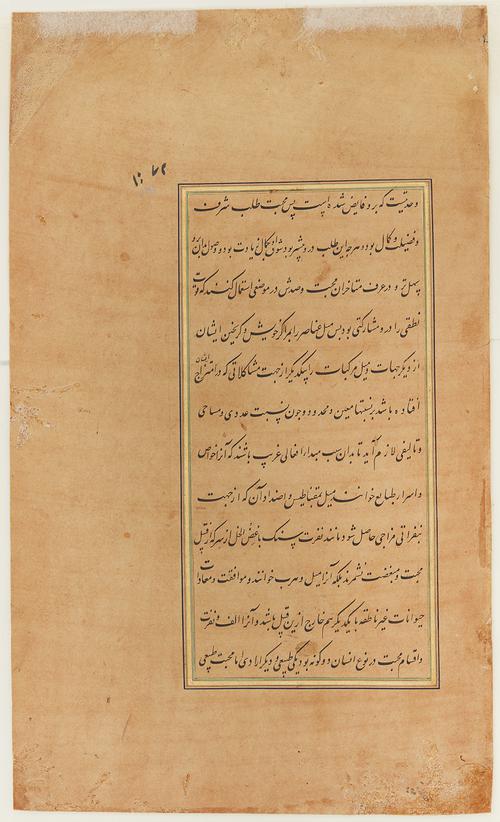 وحدتیست که برو فایض شده است پس محبت طلب شرف
و فضیلت و کمال بود و هر چه این طلب درو بیشتر بود شوق او بکمال زیادت بود و وصول بدان برو
سهل تر و در عرف متاخران محبت و ضدش در موضعی استعمال کنند که قوت
نطقی را درو مشارکتی بود پس میل عناصر را بمراکز خویش و گریختن ایشان
از دیگر جهات و میل مرکبات را بیکدیگر از جهت مشاکلاتی که در امتزاج ایشان
افتاده باشد بر نسبتهای معین و محدود چون نسبت عددی و مساحی
و تالیفی لازم آید تا بدان سبب مبدا افعالی غریب باشند که آنرا خواص
و اسرار طبایع خوانند میل بمقناطیس و اضداد آن که از جهت
تنفراتی مزاجی حاصل شود مانند نفرت سنگ باغض الخل از سرکه از قبیل
محبت و مبغضت نشمرند بلکه آنرا میل و هرب خوانند و موافقت و معادات
حیوانات غیر ناطقه با یکدیگر هم خارج ازین قبیل باشد و آنرا الف و نفرت
و اقسام محبت در نوع انسان دو گونه بود یکی طبیعی و دیگر ارادی اما محبت طبیعی